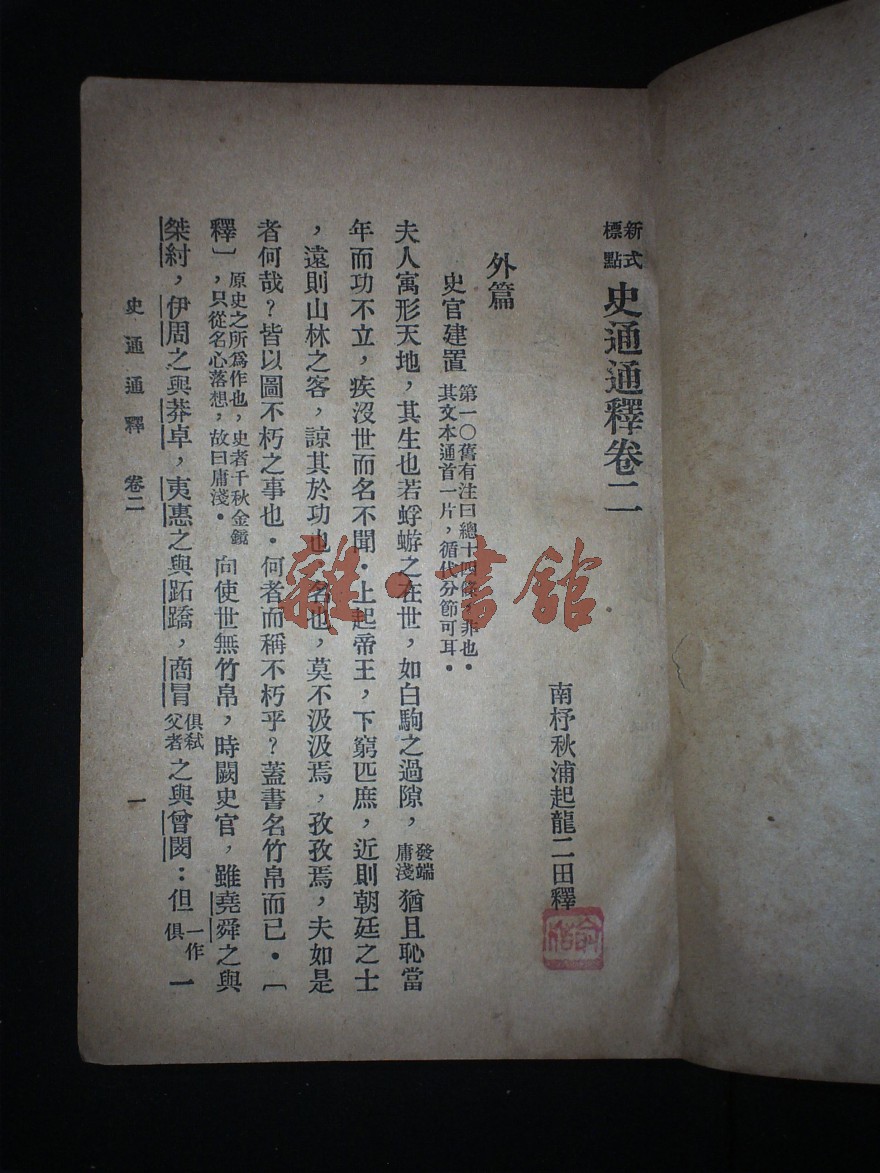 新式標點 史通通釋卷二
南杼秋浦起龍二田釋
外篇
史官建置 第一〇舊有注曰總十四條，非也・其文本通首一片，循代分節可耳・
夫人寓形天地，其生也若蜉蝣之在世，如白駒之過隙，發端庸淺猶且恥當
年而功不立，疾沒世而名不聞・上起帝王，下窮匹庶，近則朝廷之士
，遠則山林之客，諒其於功也 名也，莫不汲汲焉，孜孜焉，夫如是
者何哉？皆以圖不朽之事也・何者而稱不朽乎？蓋書名竹帛而已・〔
釋〕，原史之所爲作也，史者千秋金鏡，只從名心落想，故曰庸淺・向使世無竹帛，時闕史官，雖堯舜之與
桀紂，伊周之與莽卓，夷惠之與跖蹻，商冒俱弒父者之與曾閔：但一作俱一
史通通釋 卷二 一
雜・書館